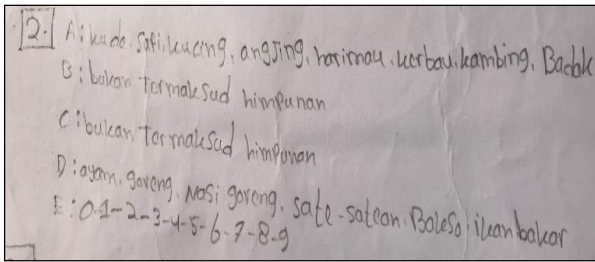 2. A: kuda, Safi, kucing, angsing, harimau, kerbau, kambing, Badak
B: bukan termaksud himpunan
C: bukan termaksud himpunan
D: ayam, goreng, Nasi goreng, sate-satean, Bakso, ikan bakar
E: 0-1-2-3-4-5-6-7-8-9